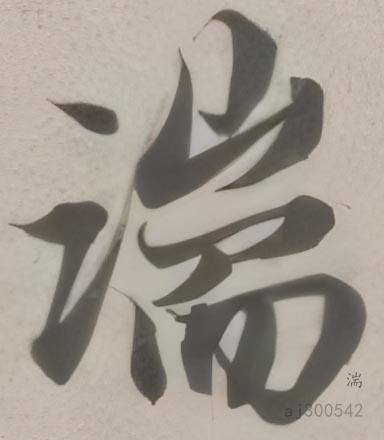 湍
湍
aj300542